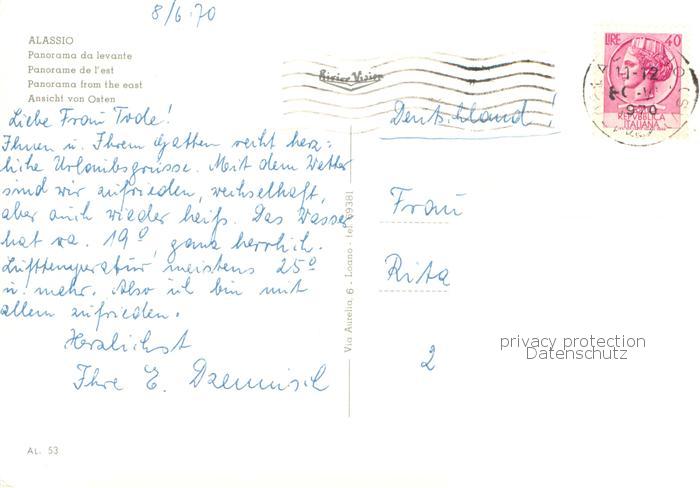 8/6.70
ALASSIO
Panorama da levante
Panorame de l'est
Panorama from the east
Ansicht von Osten
Liebe Frau Tode!
Ihnen u. Ihrem Gatten recht herz-
liche Urlaubsgrüsse. Mit dem Wetter
sind wir zufrieden, wechselhaft,
aber auch wieder heiß. Das Wasser
hat ca. 19°, ganz herrlich.
Lufttemperatur meistens 25°
u. mehr. Also ich bin mit
allem zufrieden.
Herzlichst
Ihre E.
AL. 53
Via Aurelia, 6 - Loano - tel. 69381
LIRE 40
REPVBBLICA
ITALIANA
11-12
Deutschland!
Frau
Rita
2
privacy protection
Datenschutz